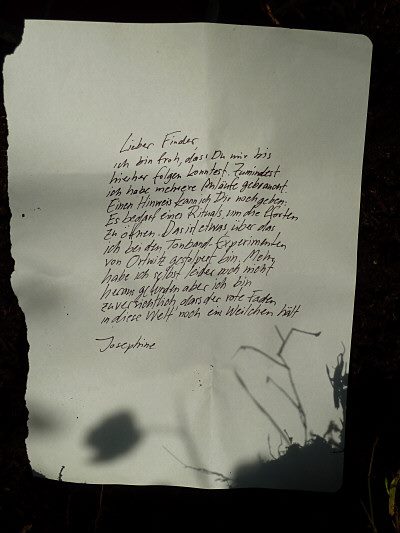 Lieber Finder,
ich bin froh, dass Du mir bis
hierher folgen konntest. Zumindest
ich habe mehrere Anläufe gebraucht.
Einen Hinweis kann ich Dir noch geben.
Es bedarf eines Rituals, um die Pforten
zu öffnen. Das ist etwas über das
ich bei den Tonband Experimenten
von Ortwitz gestolpert bin. Mehr
habe ich selbst leider noch nicht
herausgefunden aber ich bin
zuversichtlich, dass der rote Faden
in diese Welt noch ein Weilchen hält
Josephine